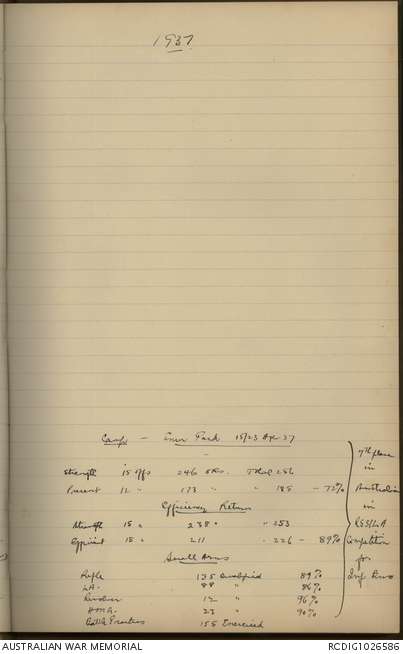 1937
Camp — Park 15/23 Apr 37
Strength 15 offs 246 ORs. Total 256
Present 12 " 173 " " 185 — 72%
Efficiency Return
Strength 15 " 238 " " 253
Efficient 15 " 211 " 226 — 89%
Small Arms
Rifle 135 Qualified 89%
LA. 88 " 86%
Revolver 12 " 96%
HMG. 23 " 90%
Battle Practices 155 Exercised
7th place
in
Australia
in
Competition
for
AUSTRALIAN WAR MEMORIAL
RCDIG1026586